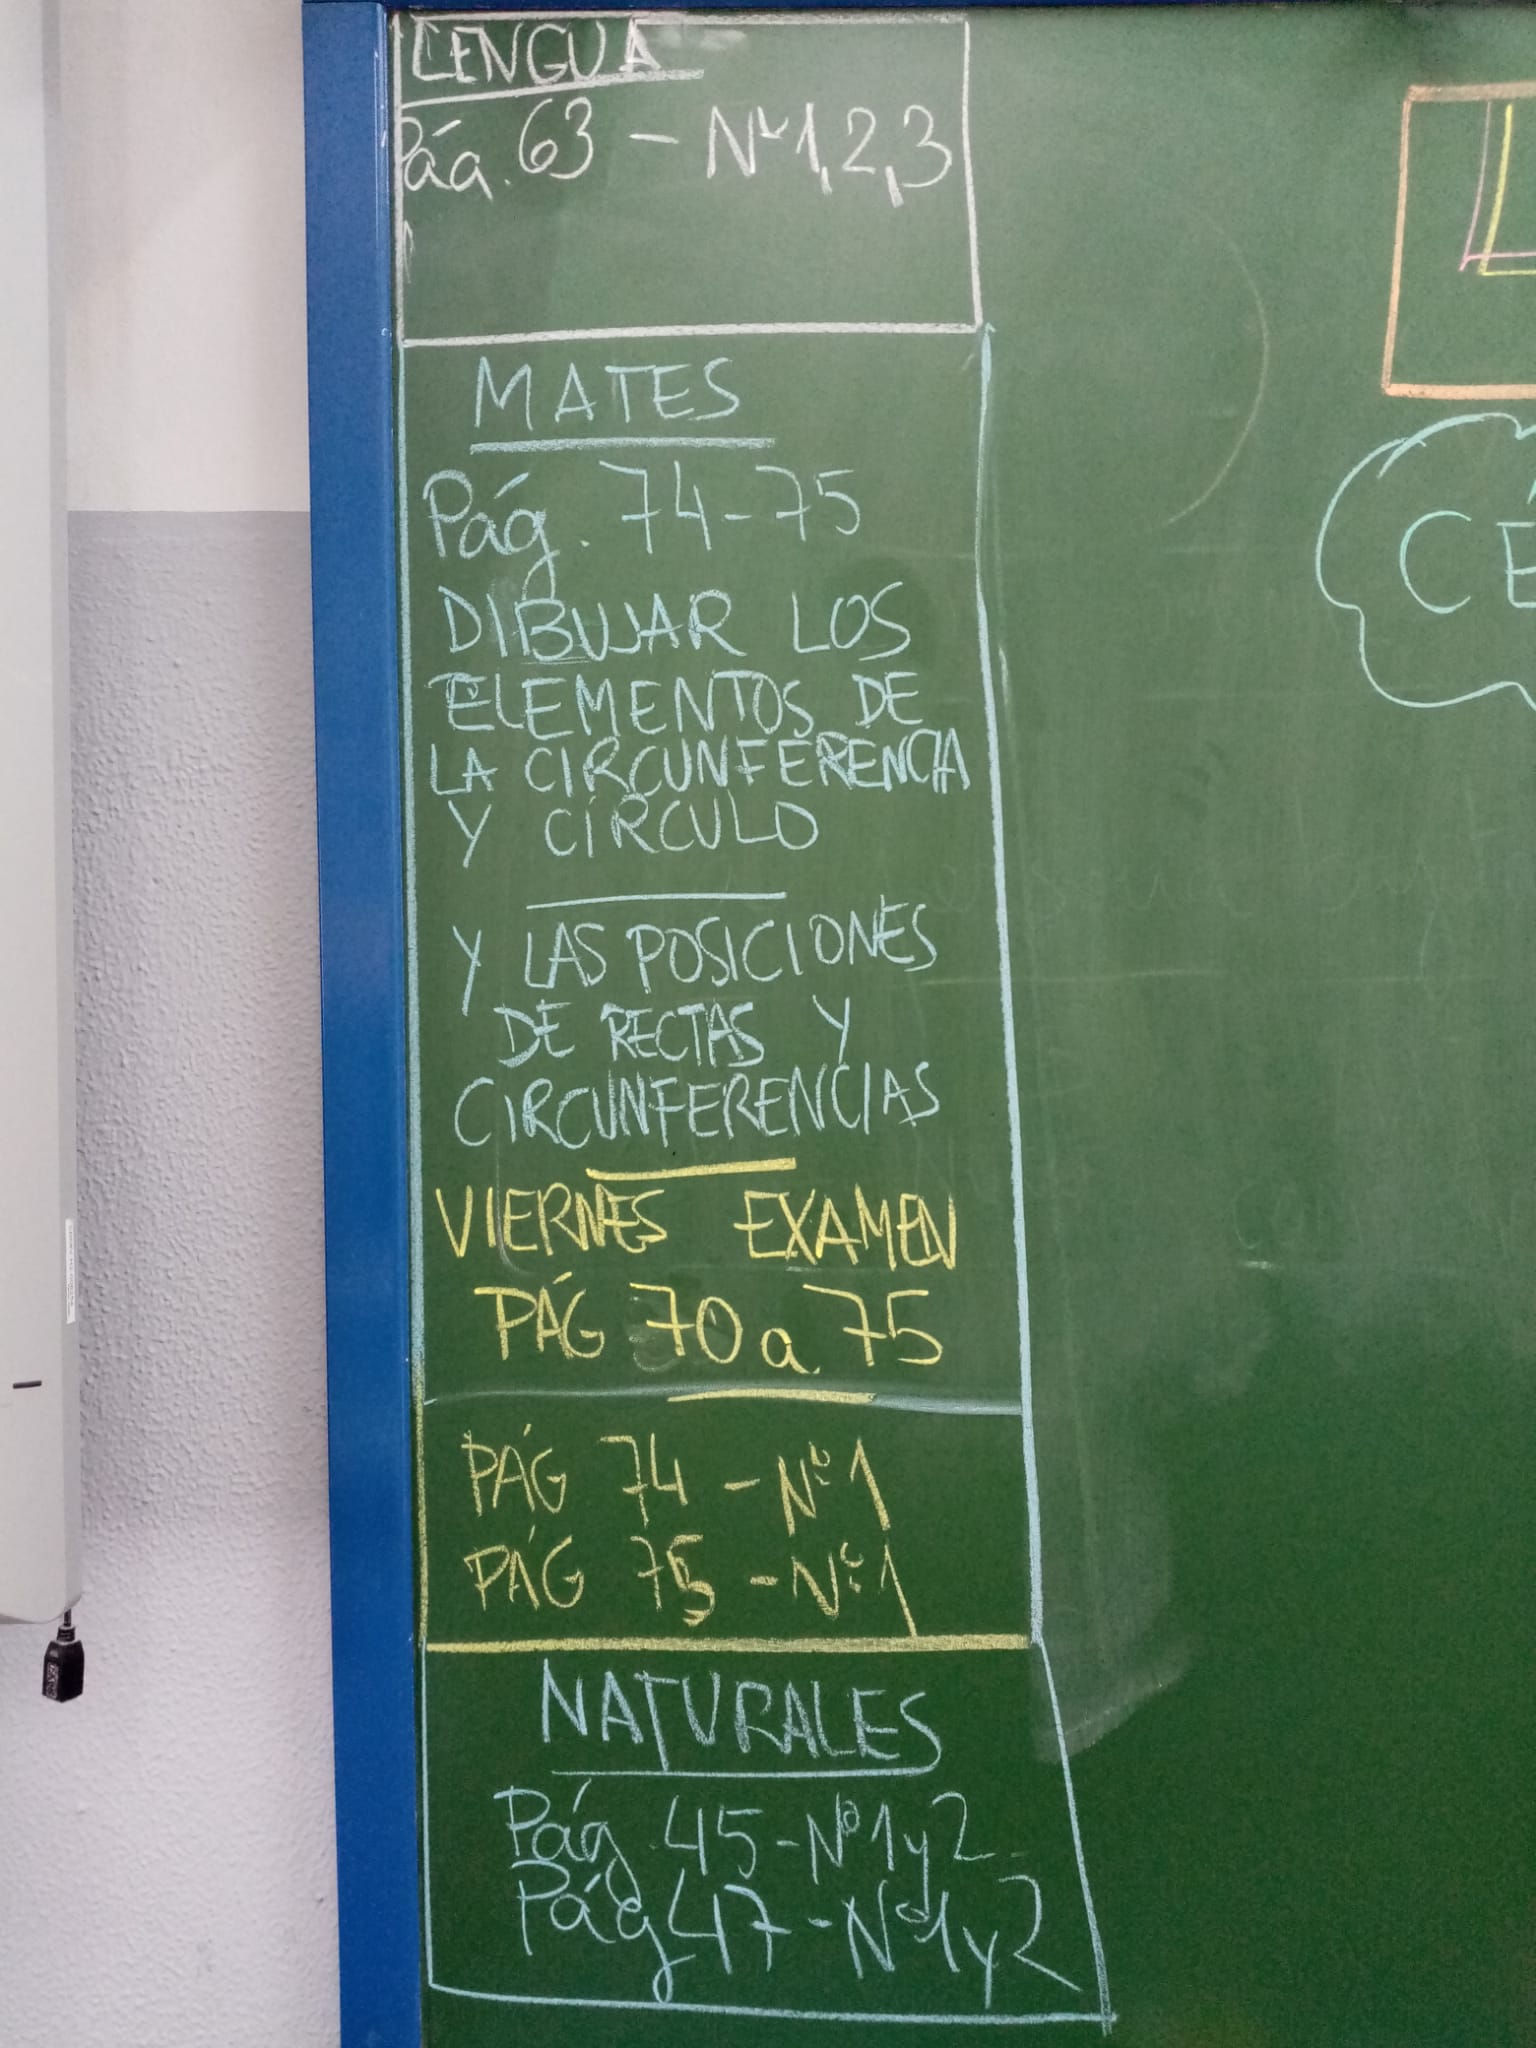 LENGUA
Pág. 63 - Nº 1, 2, 3
MATES
Pág. 74-75
DIBUJAR LOS
ELEMENTOS DE
LA CIRCUNFERENCIA
Y CÍRCULO
Y LAS POSICIONES
DE RECTAS Y
CIRCUNFERENCIAS
VIERNES EXAMEN
PÁG 70 a 75
PÁG 74 - Nº 1
PÁG 75 - Nº 1
NATURALES
Pág. 45 - Nº 1 y 2
Pág 47 - Nº 1 y 2
CÉ